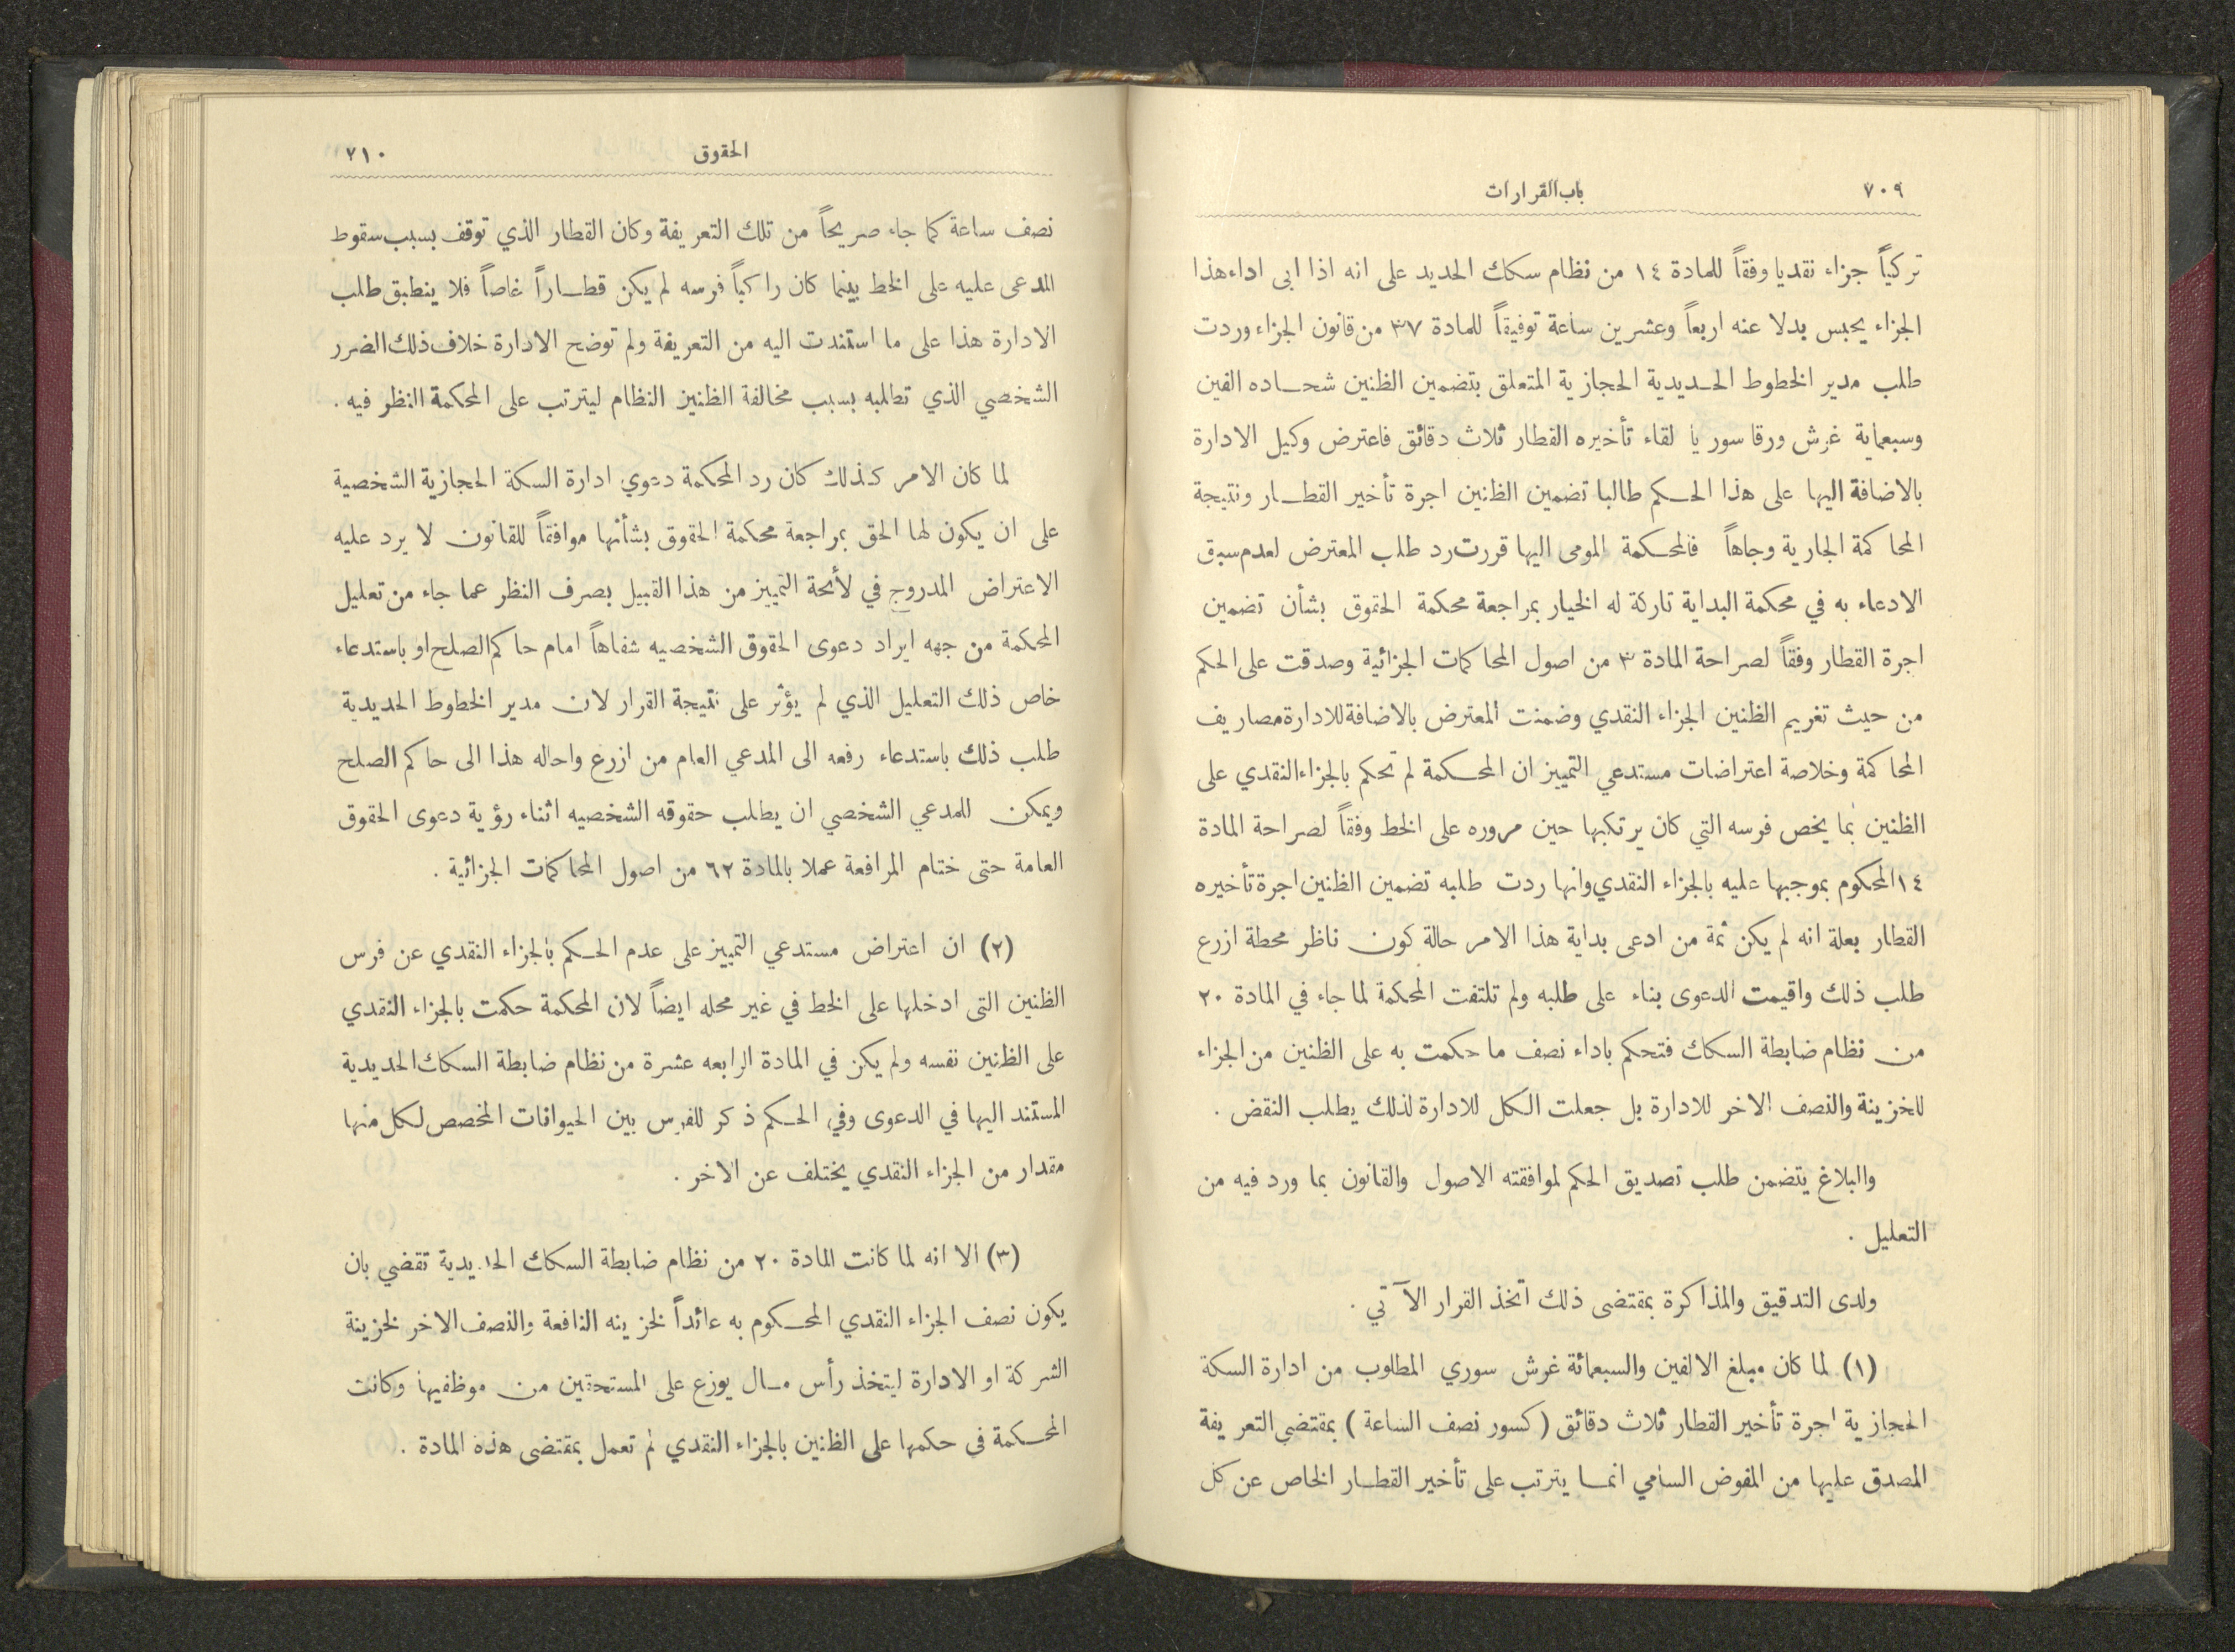 ٧٠٩
باب القرارات
تركياً جزاء نقديا وفقاً للمادة ١٤ من نظام سكك الحديد على انه اذا ابى اداء هذا
الجزاء يحبس بدلا عنه اربعاً وعشرين ساعة توفيقاً للمادة ٣٧ من قانون الجزاء وردت
طلب مدير الخطوط الحديدية الحجازية المتعلق بتضمين الظنين شحاده الفين
وسبعماية غرش ورقا سوريا لقاء تأخيره القطار ثلاث دقائق فاعترض وكيل الادارة
بالاضافة اليها على هذا الحكم طالبا تضمين الظنين اجرة تأخير القطار ونتيجة
المحاكمة الجارية وجاهاً فالمحكمة المومى اليها قررت رد طلب المعترض لعدم سبق
الادعاء به في محكمة البداية تاركة له الخيار بمراجعة محكمة الحقوق بشأن تضمين
اجرة القطار وفقاً لصراحة المادة ٣ من اصول المحاكمات الجزائية وصدقت على الحكم
من حيث تغريم الظنين الجزاء النقدي وضمنت المعترض بالاضافة للادارة مصاريف
المحاكمة وخلاصة اعتراضات مستدعي التمييز ان المحكمة لم تحكم بالجزاء النقدي على
الظنين بما يخص فرسه التي كان يرتكبها حين مروره على الخط وفقاً لصراحة المادة
١٤ المحكوم بموجبها عليه بالجزاء النقدي وانها ردت طلبه تضمين الظنين اجرة تأخيره
القطار بعلة انه لم يكن ثمة من ادعى بداية هذا الامر حالة كون ناظر محطة ازرع
طلب ذلك واقيمت الدعوى بناء على طلبه ولم تلتفت المحكمة لما جاء في المادة ٢٠
من نظام ضابطة السكك فتحكم باداء نصف ما حكمت به على الظنين من الجزاء
للخزينة والنصف الاخر للادارة بل جعلت الكل للادارة لذلك يطلب النقض .
والبلاغ يتضمن طلب تصديق الحكم لموافقته الاصول والقانون بما ورد فيه من
التعليل .
ولدى التدقيق والمذاكرة بمقتضى ذلك اتخذ القرار الآتي .
(١) لما كان مبلغ الالفين والسبعمائة غرش سوري المطلوب من ادارة السكة
الحجازية اجرة تأخير القطار ثلاث دقائق (كسور نصف الساعة) بمقتضى التعريفة
المصدق عليها من المفوض السامي انما يترتب على تأخير القطار الخاص عن كل
الحقوق
٧١٠
نصف ساعة كما جاء صريحاً من تلك التعريفة وكان القطار الذي توقف بسبب سقوط
المدعى عليه على الخط بينما كان راكباً فرسه لم يكن قطاراً خاصاً فلا ينطبق طلب
الادارة هذا على ما استندت اليه من التعريفة ولم توضح الادارة خلاف ذلك الضرر
الشخصي الذي تطلبه بسبب مخالفة الظنيز النظام ليترتب على المحكمة النظر فيه .
لما كان الامر كذلك كان رد المحكمة دعوي ادارة السكة الحجازية الشخصية
على ان يكون لها الحق بمراجعة محكمة الحقوق بشأنها موافقاً للقانون لا يرد عليه
الاعتراض المدروج في لأئحة التمييز من هذا القبيل بصرف النظر عما جاء من تعليل
المحكمة من جهه ايراد دعوى الحقوق الشخصيه شفاهاً امام حاكم الصلح او باستدعاء
خاص ذلك التعليل الذي لم يؤثر على نتيجة القرار لان مدير الخطوط الحديدية
طلب ذلك باستدعاء رفعه الى المدعي العام من ازرع واحاله هذا الى حاكم الصلح
ويمكن للمدعي الشخصي ان يطلب حقوقه الشخصيه اثناء رؤية دعوى الحقوق
العامة حتى ختام المرافعة عملا بالمادة ٦٢ من اصول المحاكمات الجزائية .
(٢) ان اعتراض مستدعي التمييز على عدم الحكم بالجزاء النقدي عن فرس
الظنين التى ادخلها على الخط في غير محله ايضاً لان المحكمة حكمت بالجزاء النقدي
على الظنين نفسه ولم يكن في المادة الرابعه عشرة من نظام ضابطة السكك الحديدية
المستند اليها في الدعوى وفي الحكم ذكر للفرس بين الحيوانات المخصص لكل منها
مقدار من الجزاء النقدي يختلف عن الاخر .
(٣) الا انه لما كانت المادة ٢٠ من نظام ضابطة السكك الحديدية تقضي بان
يكون نصف الجزاء النقدي المحكوم به عائداً لخزينه النافعة والنصف الاخر لخزينة
الشركة او الادارة ليتخذ رأس مال يوزع على المستحقين من موظفيها وكانت
المحكمة في حكمها على الظنين بالجزاء النقدي لم تعمل بمقتضى هذه المادة .